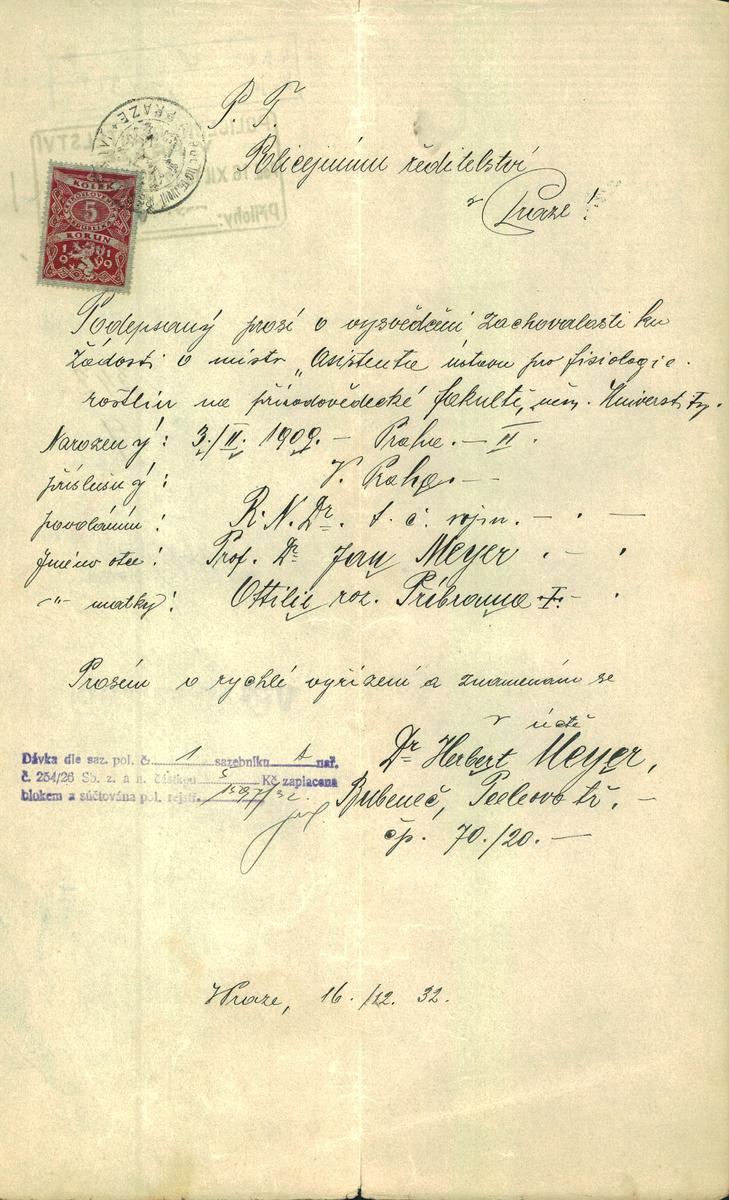 P. T.
Policejnímu ředitelství
v Praze!
KOLEK
5
KORUN
1919
Přílohy:
Podepsaný prosí o vysvědčení zachovalosti ku
žádosti o místo „Asistenta ústavu pro fisiologie
rostlin na přírodovědecké fakultě, něm. University.
Narozený: 3./II. 1909. – Praha. – II.
příslušný: V. Praha. –
povoláním: R. N. Dr. t. č. vojín. –
Jméno otce: Prof. Dr. Jan Meyer. –
–"– matky: Ottilie roz. Příbrama
Prosím o rychlé vyřízení a znamenám se
v úctě
Dr Herbert Meyer,
Bubeneč, Pelleova tř. –
čp. 70./20. –
Dávka dle saz. pol. č. 1 sazebníku A nař.
č. 254/26 Sb. z. a n. částkou 5 Kč zaplacena
blokem a súčtována pol. rejstř.
V Praze, 16./12. 32.